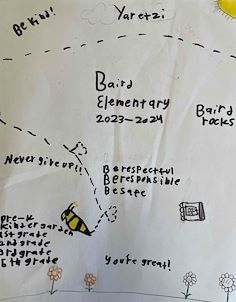 Be kind!
Yaretzi
Baird
Elementary
2023-2024
Baird
rocks
Never give up!!
Be respectful
Be responsible
Be safe
pre-k
Kindergarden
1st grade
2nd grade
3rd grade
5th grade
You're great!